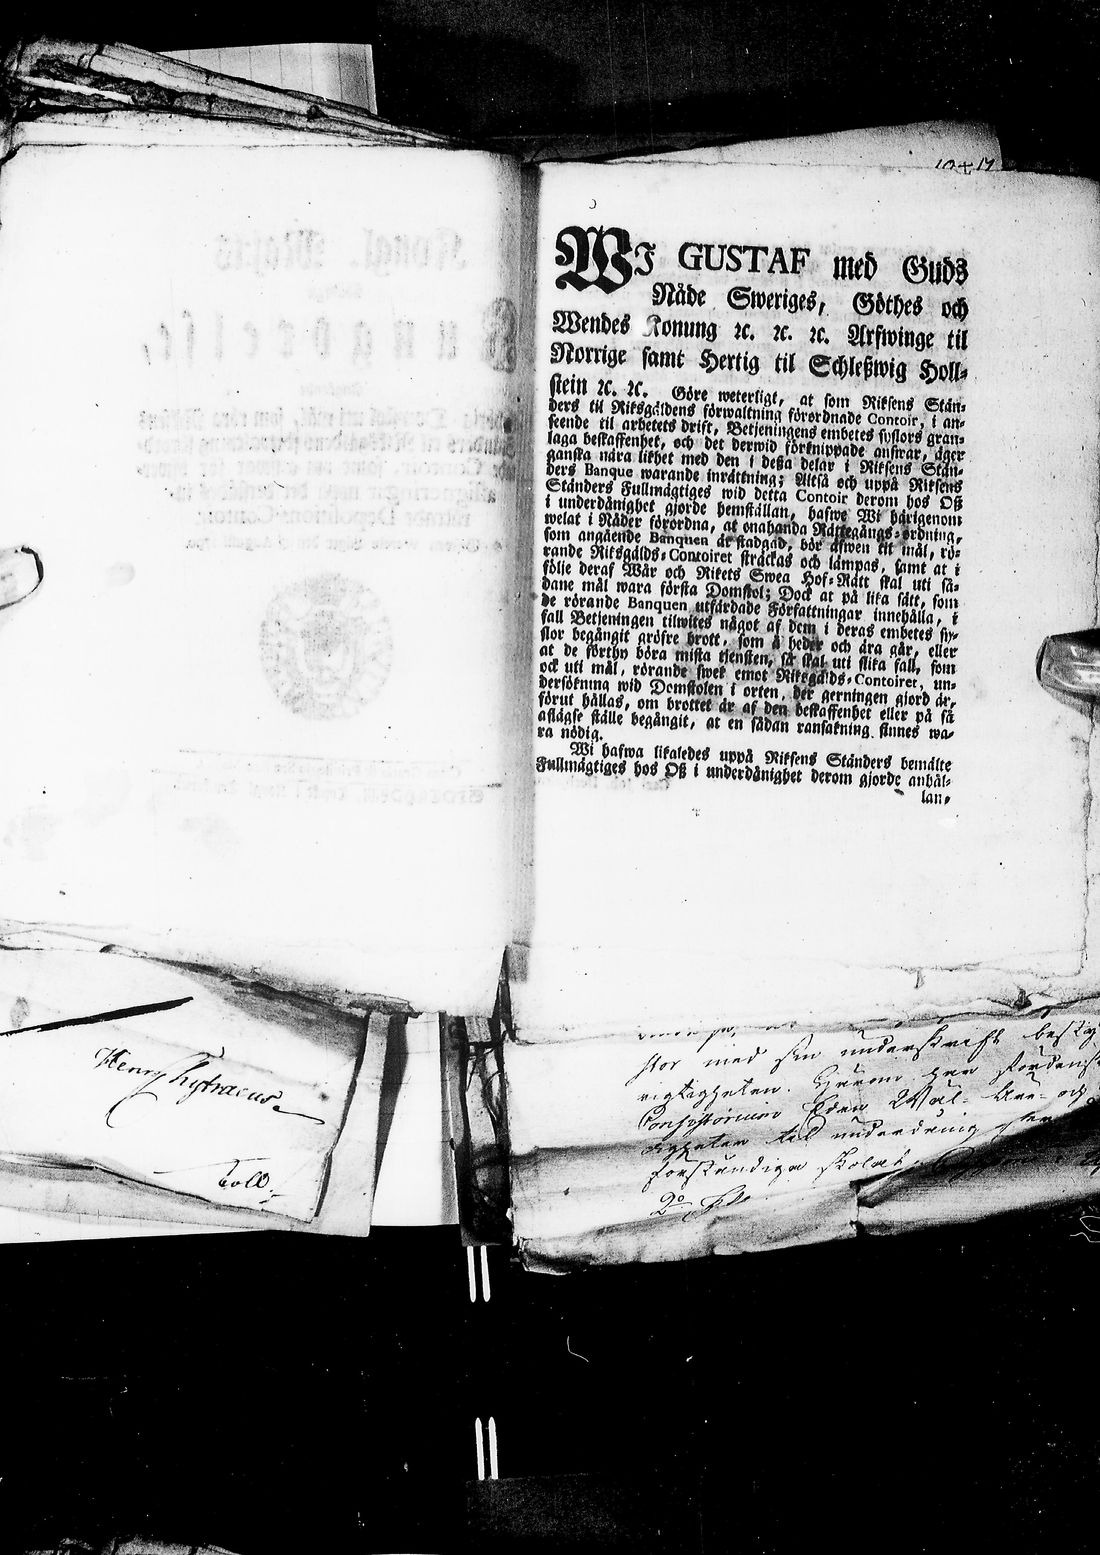 WJ GUSTAF med Guds
Nåde Sweriges, Göthes och
Wendes Konung ꝛc. ꝛc. ꝛc. Arfwinge til
Norrige samt Hertig til Schleßwig Holl-
stein ꝛc. ꝛc. Göre weterligt, at som Riksens Stän-
ders til Riksgäldens förwaltning förordnade Contoir, i an-
seende til arbetets drift, Betjeningens embetes syslors gran-
laga beskaffenhet, och det derwid förknippade answar, äger
ganska nära likhet med den i deßa delar i Riksens Stän-
ders Banque warande inrättning; Altså och uppå Riksens
Ständers Fullmägtiges wid detta Contoir derom hos Oß
i underdånighet gjorde hemställan, hafwe Wi härigenom
welat i Nåder förordna, at enahanda Rättegångs-ordning,
som angående Banquen är stadgad, bör äfwen til mål, rö-
rande Riksgälds-Contoiret sträckas och lämpas, samt at i
följe deraf Wår och Rikets Swea Hof-Rätt skal uti så-
dane mål wara första Domstol; Dock at på lika sätt, som
de rörande Banquen utfärdade Författningar innehålla, i
fall Betjeningen tilwites något af dem i deras embetes sy-
slor begångit gröfre brott, som å heder och ära går, eller
at de förthy böra mista tjensten, så skal uti slika fall, som
ock uti mål, rörande swek emot Riksgälds-Contoiret, un-
dersökning wid Domstolen i orten, der gerningen gjord är,
förut hållas, om brottet är af den beskaffenhet eller på så
aflägse ställe begångit, at en sådan ransakning finnes wa-
ra nödig.
Wi hafwa likaledes uppå Riksens Ständers bemälte
Fullmägtiges hos Oß i underdånighet derom gjorde anhål-
lan,
Henr. Kytraeus
med sin underskrift
Consistorium
til
2o